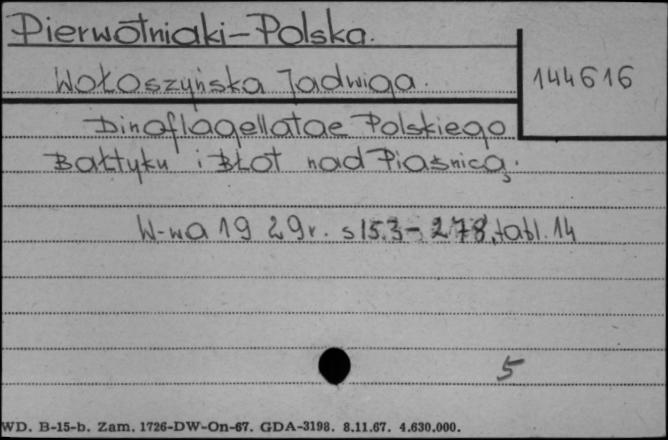 Pierwotniaki-Polska.
Wołoszyńska Jadwiga.
144616
Dinoflagellatae Polskiego
Bałtyku i Błot nad Piaśnicą.
W-wa 1929r. s 153-278, tabl. 14
5
WD. B-15-b. Zam. 1726-DW-On-67. GDA-3198. 8.11.67. 4.630.000.